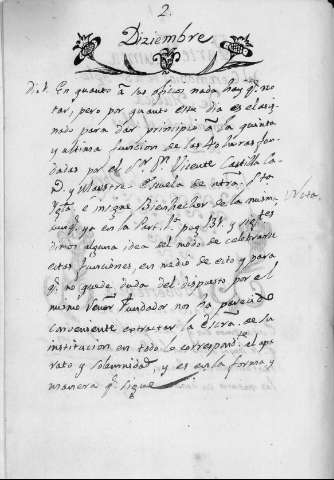 2.
Diziembre
Di.1. En quanto â los ofizios nada hay q.e no-
tar, pero por quanto este dia es el asig-
nado para dar principio â la quinta
y ultima funcion de las 40 horas fun-
dadas por el S.r D.n Vicente Castilla
D. y Maestre Escuela de ntra. S.ta
Ygl.a e insigne Bienhechor de la misma
aunq.e ya en la Part. 1.a pag. 131. y sig.tes
Nota.
dimos alguna idea del modo de celebrarse
estas funciones, en medio de esto y para
q.e no quede duda del dispuesto por el
mismo Fundador nos ha parecido
conveniente extractar la Escra. de su
institucion en todo lo correspond.te al apa-
rato y solemnidad, y es en la forma y
manera q.e sigue